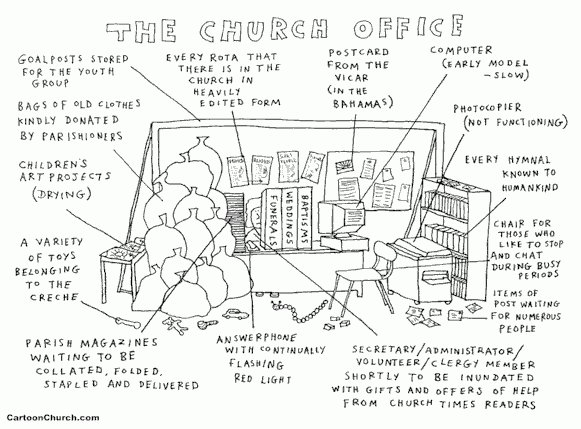 THE CHURCH OFFICE
GOALPOSTS STORED
FOR THE YOUTH
GROUP
EVERY ROTA THAT
THERE IS IN THE
CHURCH IN
HEAVILY
EDITED FORM
POSTCARD
FROM THE
VICAR
(IN THE
BAHAMAS)
COMPUTER
(EARLY MODEL
- SLOW)
BAGS OF OLD CLOTHES
KINDLY DONATED
BY PARISHIONERS
PHOTOCOPIER
(NOT FUNCTIONING)
CHILDREN'S
ART PROJECTS
(DRYING)
EVERY HYMNAL
KNOWN TO
HUMANKIND
FUNERALS
WEDDINGS
BAPTISMS
A VARIETY
OF TOYS
BELONGING
TO THE
CRECHE
CHAIR FOR
THOSE WHO
LIKE TO STOP
AND CHAT
DURING BUSY
PERIODS
ITEMS OF
POST WAITING
FOR NUMEROUS
PEOPLE
PARISH MAGAZINES
WAITING TO BE
COLLATED, FOLDED,
STAPLED AND DELIVERED
ANSWERPHONE
WITH CONTINUALLY
FLASHING
RED LIGHT
SECRETARY/ADMINISTRATOR/
VOLUNTEER/CLERGY MEMBER
SHORTLY TO BE INUNDATED
WITH GIFTS AND OFFERS OF HELP
FROM CHURCH TIMES READERS
CartoonChurch.com